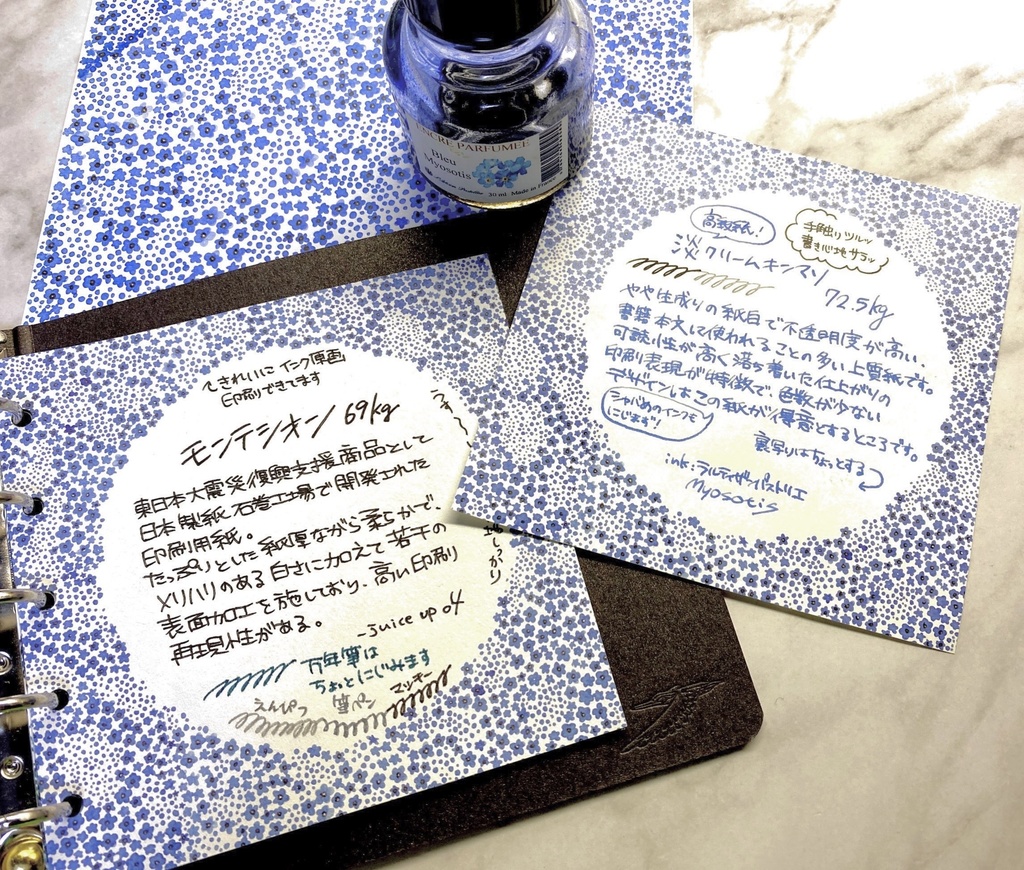 ENCRE PARFUMEE
Bleu
Myosotis
30 ml Made in France
高級紙!
手触りツルッ
書き心地サラッ
淡クリームキンマリ
72.5kg
やや生成りの紙目で不透明度が高い、
書籍本文に使われることの多い上質紙です。
可読性が高く落ち着いた仕上がりの
印刷表現が特徴で、色数が少ない
デザインはこの紙が得意とするところです。
シャバめのインクも
にじまず!
裏写りはちょっとする
ink:ラルティザンパストリエ
Myosotis
きれいに インク原画
印刷できてます
モンテシオン 69kg
東日本大震災復興支援商品として
日本製紙石巻工場で開発された
印刷用紙。
たっぷりとした紙厚ながら柔らかで、
メリハリのある白さに加えて若干の
表面加工を施しており、高い印刷
再現性がある。
-Juice up 04
万年筆は
ちょっとにじみます
えんぴつ 筆ペン マッキー